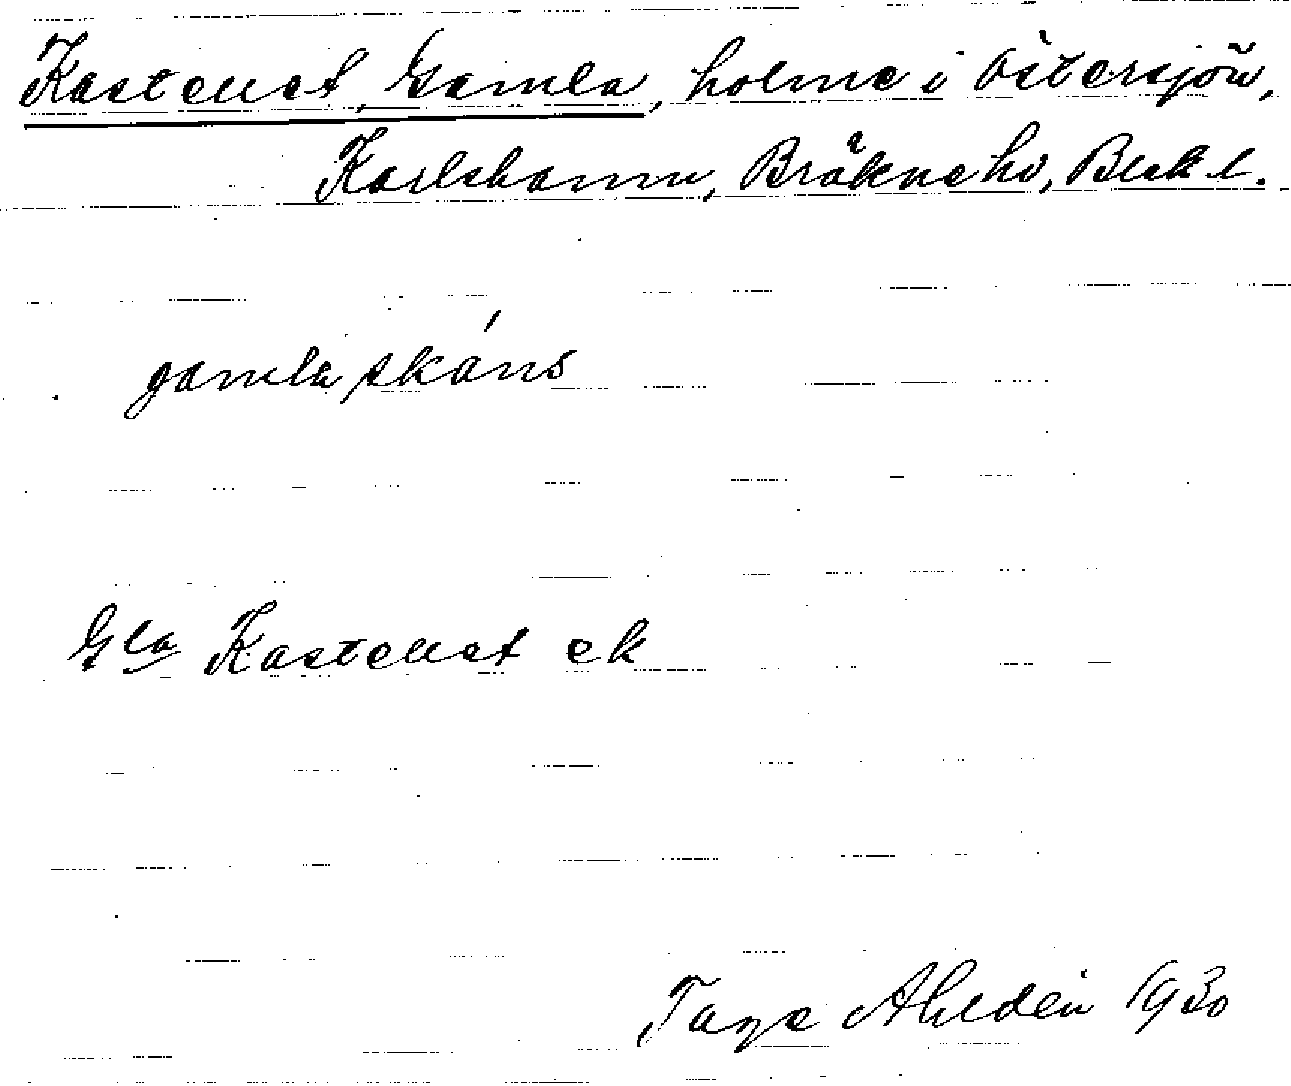 Kastellet, Gamla, holme i Östersjön,
Karlshamn, Bräkne hd, Blek. l.
gamla skáns
Gla Kastellet ek
Tage Ahldén 1930